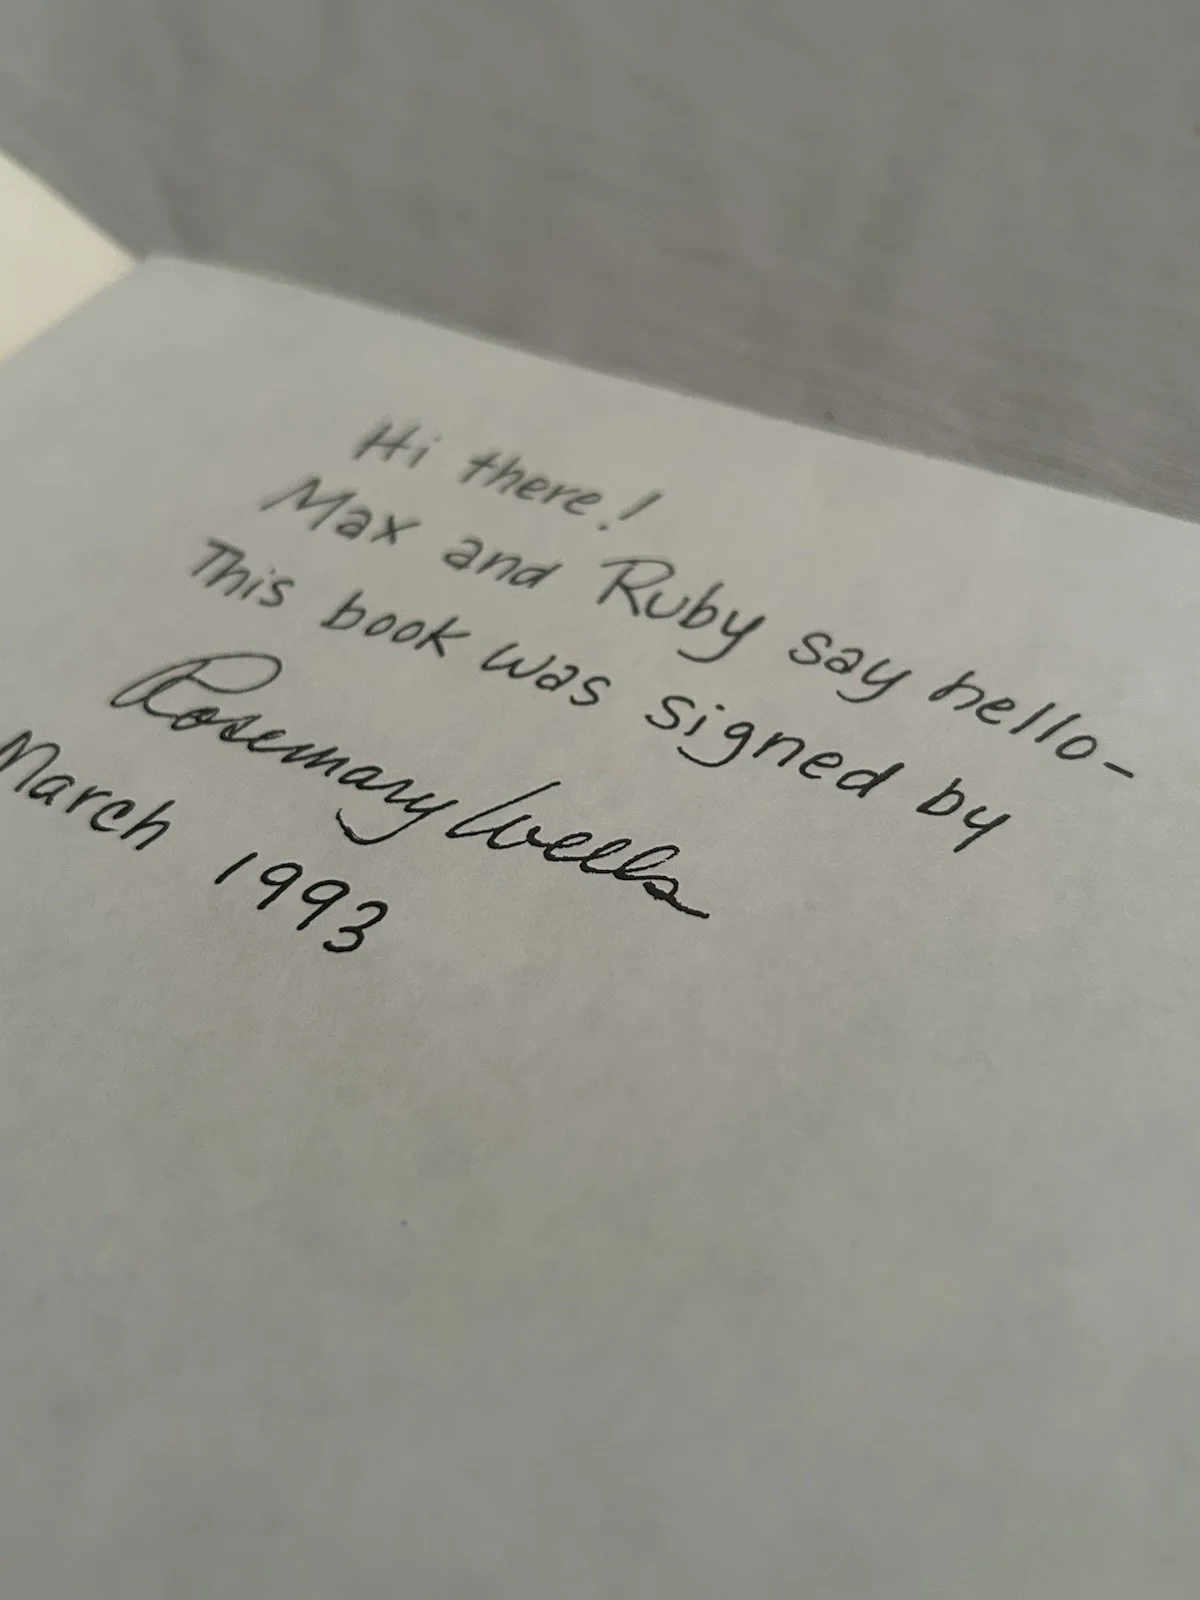 Hi there!
Max and Ruby say hello-
This book was signed by
Rosemary Wells
March 1993